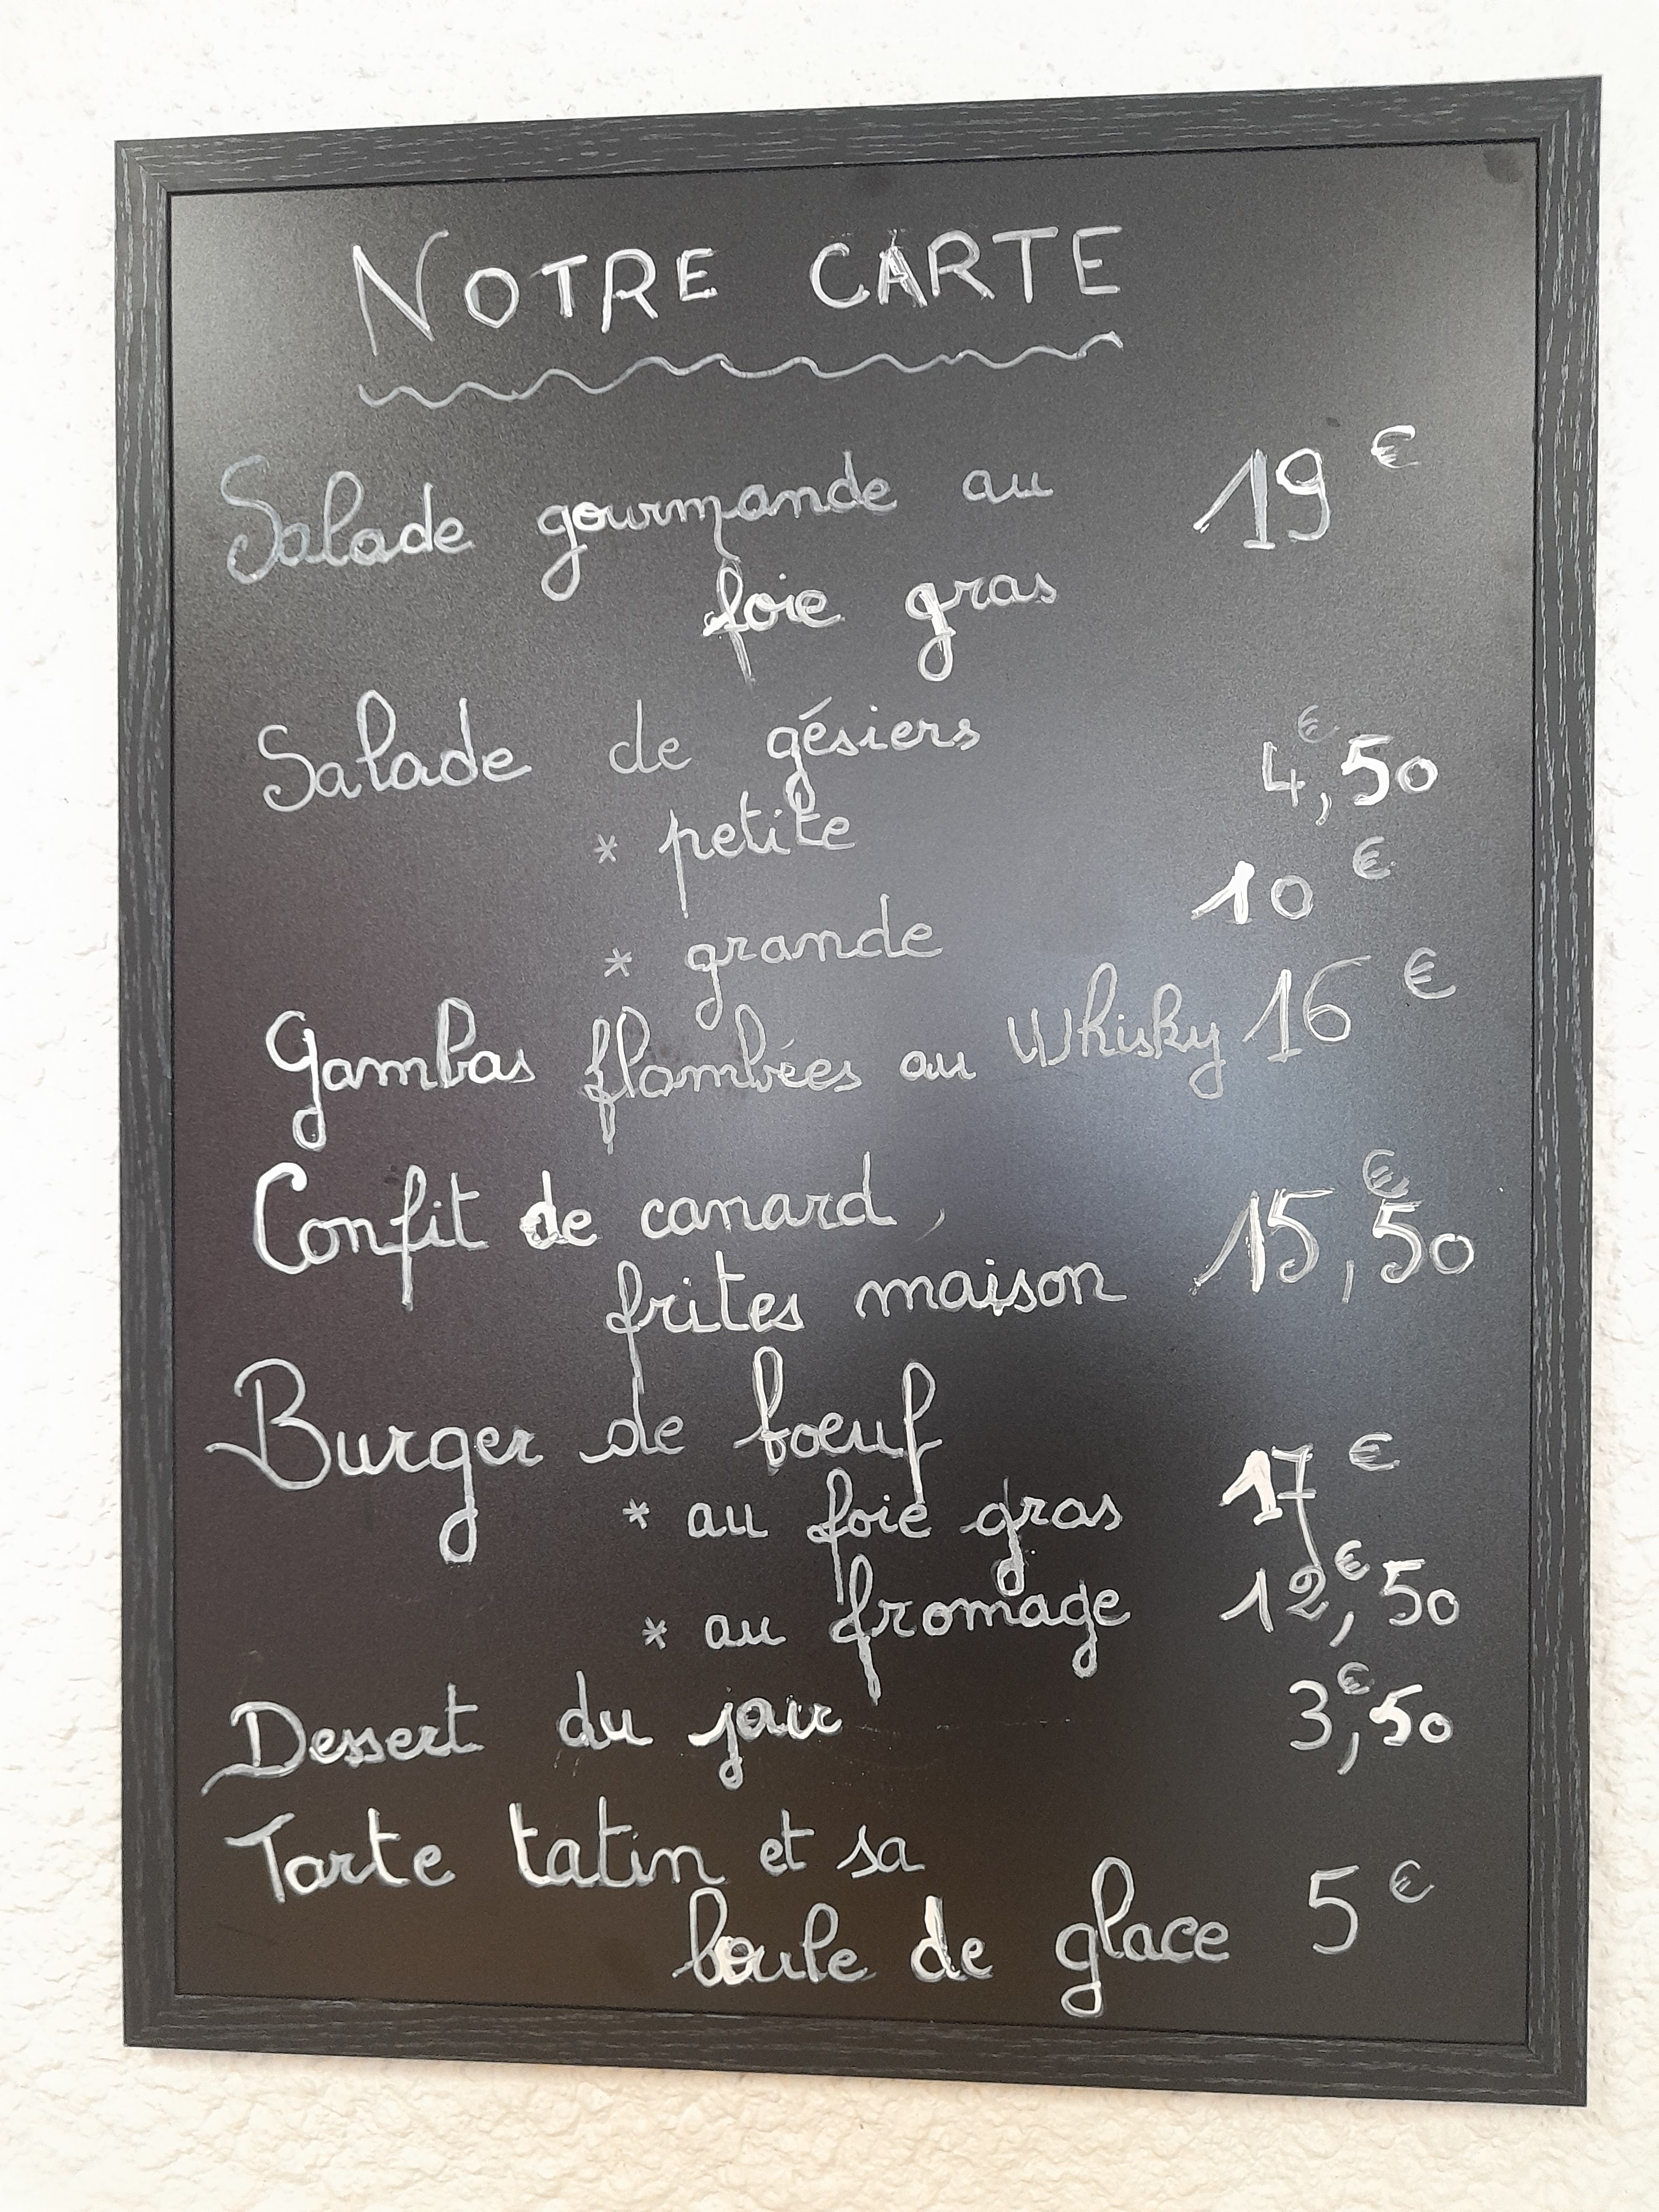 NOTRE CARTE
Salade gourmande au 19 €
foie gras
Salade de gésiers
* petite 4,€50
* grande 10 €
Gambas flambées au Whisky 16 €
Confit de canard,
frites maison 15,€50
Burger de boeuf
* au foie gras 17 €
* au fromage 12,€50
Dessert du jour 3,€50
Tarte tatin et sa
boule de glace 5 €